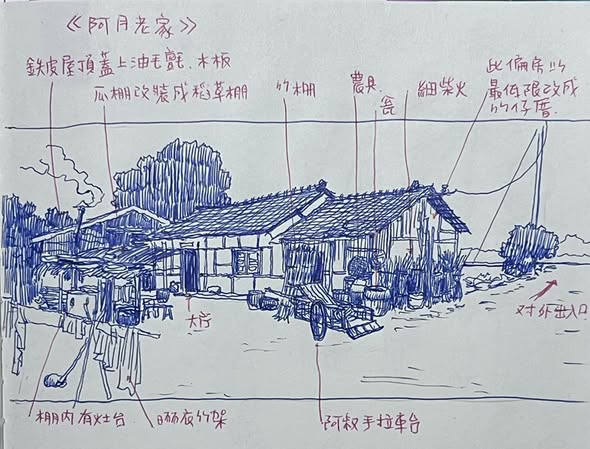 《阿月老家》
鉄皮屋頂蓋上油毛氈、木板
瓜棚改裝成稻草棚
竹棚
農具
瓮
細柴火
此偏房以
最低限改成
竹仔厝
大厅
對外出入口
棚內有灶台
晒衣竹架
阿叔手拉車台